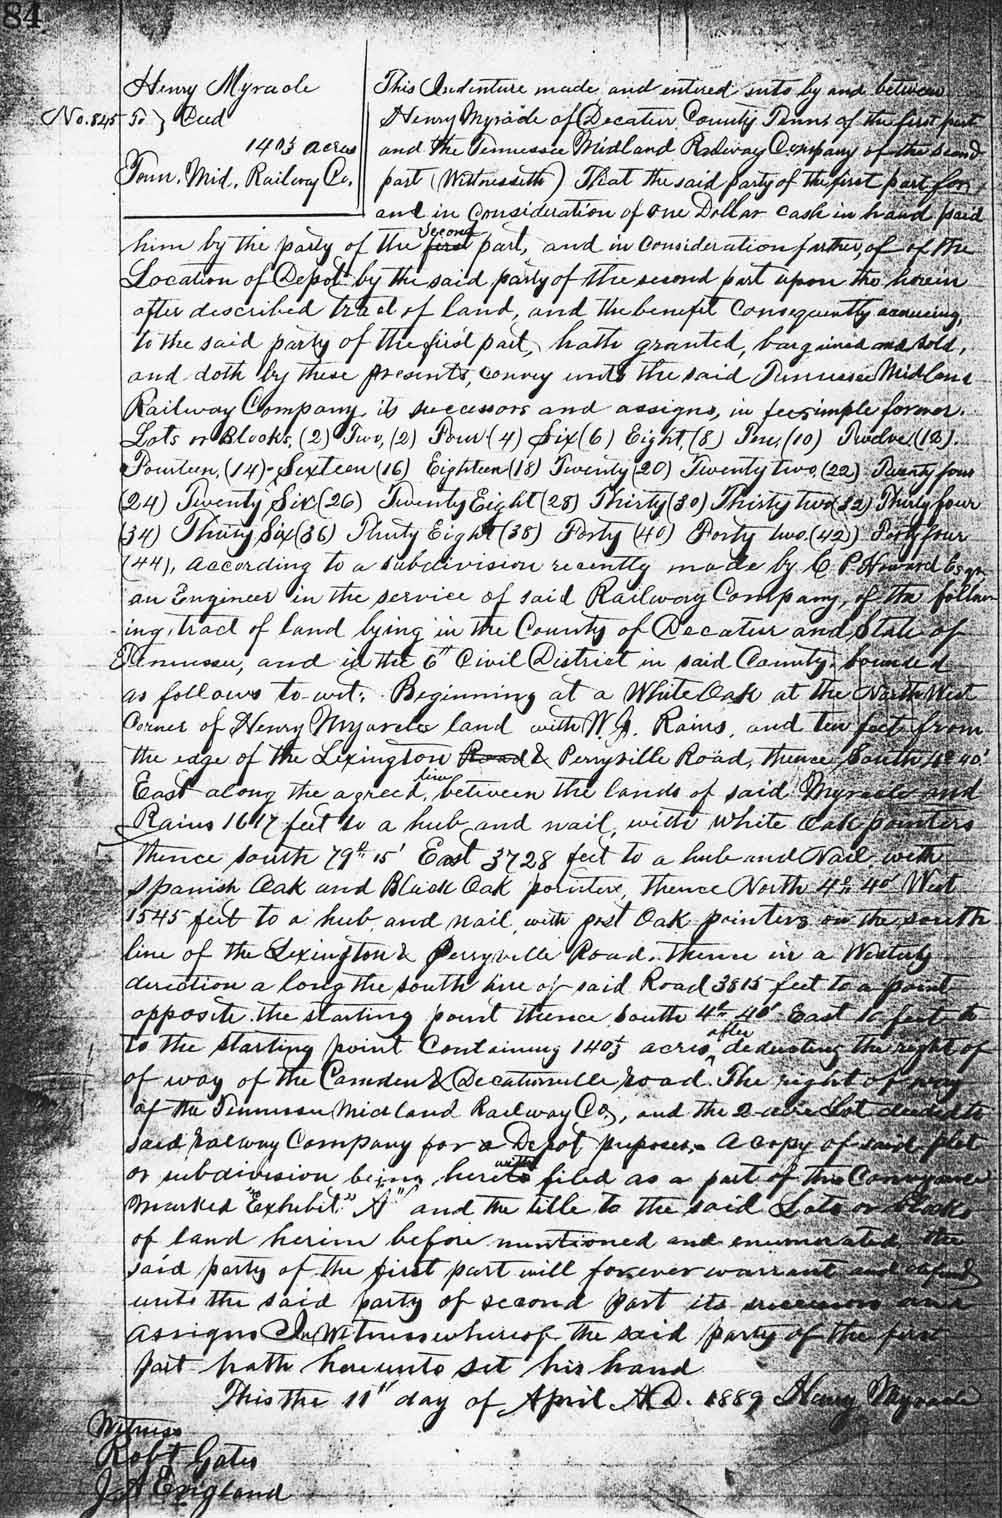 84
Henry Myracle
No. 845 To } Deed
140 3 acres
Tenn. Mid. Railway Co.
This Indenture made and entered into by and between
Henry Myracle of Decatur County Tenn. of the first part
and the Tennessee Midland Railway Company of the second
part (Wittnesseth) That the said party of the first part for
and in Consideration of one Dollar cash in hand paid
him by the party of the first second part, and in consideration further, of of the
Location of Depot by the said party of the second part upon the herein
after described tract of land, and the benefit Consequently accrueing,
to the said party of the first part, hath granted, bargained and sold,
and doth by these presents, convey unto the said Tennessee Midland
Railway Company, its successors and assigns, in fee simple forever.
Lots or Blocks, (2) Two, (2) Four (4) Six (6) Eight, (8) Ten, (10) Twelve (12).
Fourteen, (14) Sexteen (16) Eighteen (18) Twenty (20) Twenty two, (22) Twenty four
(24) Twenty Six (26) Twenty Eight (28) Thirty (30) Thirty two (32) Thirty four
(34) Thirty Six (36) Thirty Eight (38) Forty (40) Forty two. (42) Forty four
(44), according to a subdivision recently made by C. P. Howard Esqr.
an Engineer in the service of said Railway Company, of the follow-
ing, tract of land lying in the County of Decatur and State of
Tennessee, and in the 6th Civil District in said County. bounded
as follows to-wit; Beginning at a White Oak at the North West
Corner of Henry Myaracle land with W. J. Rains, and ten feet from
the edge of the Lexington Road & Perryville Road, thence South 4° 40'
East along the agreed line between the lands of said Myracle and
Rains 1617 feet to a hub and nail, with White Oak pointers
thence south 79° 15' East 3728 feet to a hub and Nail with
Spanish Oak and Black Oak pointers, thence North 4° 40' West
1545 feet to a hub and nail, with post Oak pointers on the south
line of the Lexington & Perryville Road. thence in a Westerly
direction a long the south line of said Road 3815 feet to a point
opposite the starting point thence South 4° 40' East 10 feet to
to the starting point Containing 140 acres after deducting the right of
of way of the Camden & Decaturville road. The right of way
of the Tennessee Midland Railway Co., and the 2 acre Lot deeded to
said Railway Company for a Depot purposes. A copy of said plat
or subdivision being hereto with filed as a part of this Conveyance
Marked "Exhibit" "A" and the title to the said Lots or Blocks
of land herein before mentioned and enumerated, the
said party of the first part will forever warrant and defend
unto the said party of second part its successors and
assigns In Witness whereof the said party of the first
part hath hereunto set his hand
This the 11th day of April A.D. 1889 Henry Myracle
Witness
Robt Gates
J A England